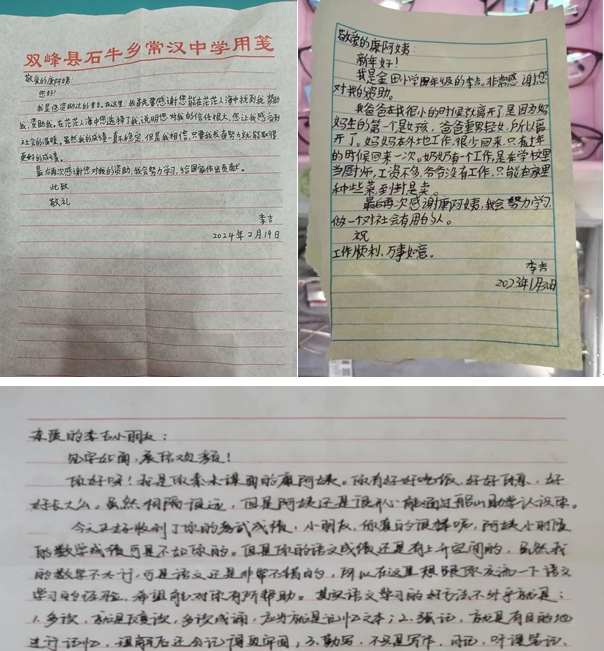 双峰县石牛乡常汉中学用笺
敬爱的康阿姨
您好!
我是您资助过的李吉。在这里,我最要感谢您能在茫茫人海中找到我,资助
我,资助我。在茫茫人海中您选择了我,说明您对我的信任很大,您让我感受到
社会的温暖。虽然我的成绩一直不稳定,但是我相信,只要我认真努力就能取得
更好的成绩。
最后再次感谢您对我的资助,我会努力学习,为国家作出贡献。
此致
敬礼
李吉
2024年2月19日
敬爱的康阿姨:
新年好!
我是金田小学四年级的李吉。非常感谢您
对我的资助。
我爸爸在我很小的时候就离开了是因为妈
妈生的第一个是女孩,爸爸重男轻女,所以离
开了。妈妈在外地工作,很少回来,只有过年
的时候回来一次。奶奶有一个工作,是在学校里
当厨师,工资不多,爷爷没有工作,只能在家里
种些菜到街是卖。
最后再次感谢康阿姨,我会努力学习
做一个对社会有用的人。
祝
工作顺利,万事如意。
李吉
2023年1月30日
亲爱的李吉小朋友:
见字如面,展信欢颜!
你好呀!我是你素未谋面的康阿姨。你有好好吃饭,好好休息,好
好长大么。虽然相隔很远,但是阿姨还是很开心能通过韶山助学认识你。
今天正好收到了你的考试成绩,小朋友,你真的很棒呢,阿姨小时候
的数学成绩可是不如你的。但是你的语文成绩还是有上升空间的,虽然我
的数学不太行,可是语文还是非常不错的,所以在这里想跟你交流一下语文
学习的经验,希望能对你有所帮助。其实语文学习的好方法不外乎就是:
1.多读,就是反复读,多读成诵,尤为就是记忆文本;2.强记,就是有目的地
进行记忆,理解后还会记得更牢固;3.勤写,不只是写作、日记、听课笔记、